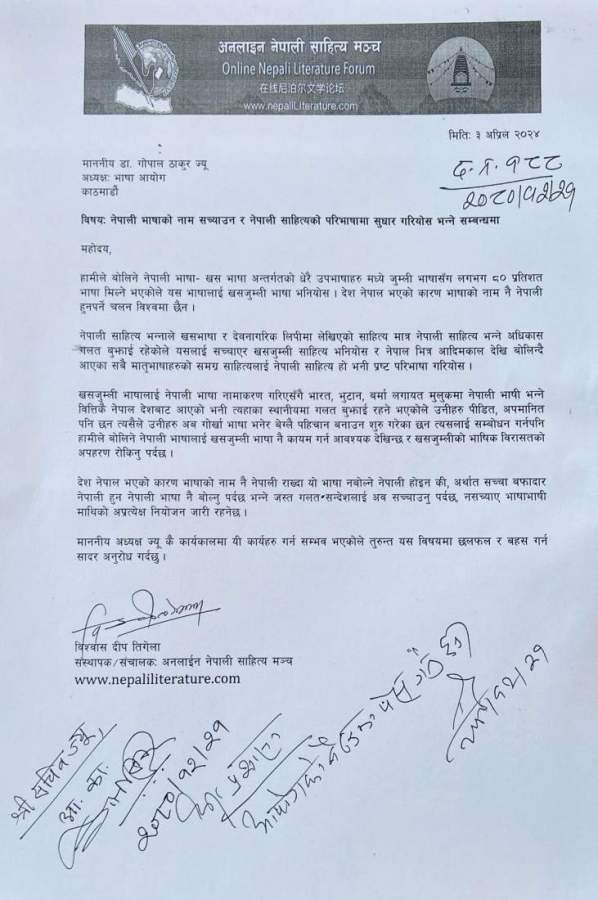 अनलाइन नेपाली साहित्य मञ्च
Online Nepali Literature Forum
在线尼泊尔文学论坛
www.nepaliLiterature.com
मितिः ३ अप्रिल २०२४
माननीय डा. गोपाल ठाकुर ज्यू
द.नं. १८८
अध्यक्षः भाषा आयोग
२०८०/१२/२१
काठमाडौं
विषयः नेपाली भाषाको नाम सच्याउन र नेपाली साहित्यको परिभाषामा सुधार गरियोस भन्ने सम्बन्धमा
महोदय,
हामीले बोलिने नेपाली भाषा- खस भाषा अन्तर्गतको धेरै उपभाषाहरु मध्ये जुम्ली भाषासँग लगभग ८० प्रतिशत
भाषा मिल्ने भएकोले यस भाषालाई खसजुम्ली भाषा भनियोस । देश नेपाल भएको कारण भाषाको नाम नै नेपाली
हुनपर्ने चलन विश्वमा छैन ।
नेपाली साहित्य भन्नाले खसभाषा र देवनागरिक लिपीमा लेखिएको साहित्य मात्र नेपाली साहित्य भन्ने अधिकास
गलत बुझाई रहेकोले यसलाई सच्याएर खसजुम्ली साहित्य भनियोस र नेपाल भित्र आदिमकाल देखि बोलिन्दै
आएका सबै मातृभाषाहरुको समग्र साहित्यलाई नेपाली साहित्य हो भनी प्रष्ट परिभाषा गरियोस ।
खसजुम्ली भाषालाई नेपाली भाषा नामाकरण गरिएसँगै भारत, भुटान, बर्मा लगायत मुलुकमा नेपाली भाषी भन्ने
वित्तिकै नेपाल देशबाट आएको भनी त्यहाका स्थानीयमा गलत बुझाई रहने भएकोले उनीहरु पीडित, अपमानित
पनि छन त्यसैले उनीहरु अब गोर्खा भाषा भनेर बेग्लै पहिचान बनाउन शुरु गरेका छन त्यसलाई सम्बोधन गर्नपनि
हामीले बोलिने नेपाली भाषालाई खसजुम्ली भाषा नै कायम गर्न आवश्यक देखिन्छ र खसजुम्लीको भाषिक विरासतको
अपहरण रोकिनु पर्दछ ।
देश नेपाल भएको कारण भाषाको नाम नै नेपाली राख्दा यो भाषा नबोल्ने नेपाली होइन की, अर्थात सच्चा बफादार
नेपाली हुन नेपाली भाषा नै बोल्नु पर्दछ भन्ने जस्त गलत सन्देशलाई अब सच्चाउनु पर्दछ, नसच्याए भाषाभाषी
माथिको अप्रत्येक्ष नियोजन जारी रहनेछ ।
माननीय अध्यक्ष ज्यू कै कार्यकालमा यी कार्यहरु गर्न सम्भव भएकोले तुरुन्त यस विषयमा छलफल र बहस गर्न
सादर अनुरोध गर्दछु ।
विश्वास दीप तिगेला
संस्थापक/संचालकः अनलाईन नेपाली साहित्य मञ्च
www.nepaliliterature.com
श्री सचिव ज्यू,
आ. का.
२०८०/१२/२१